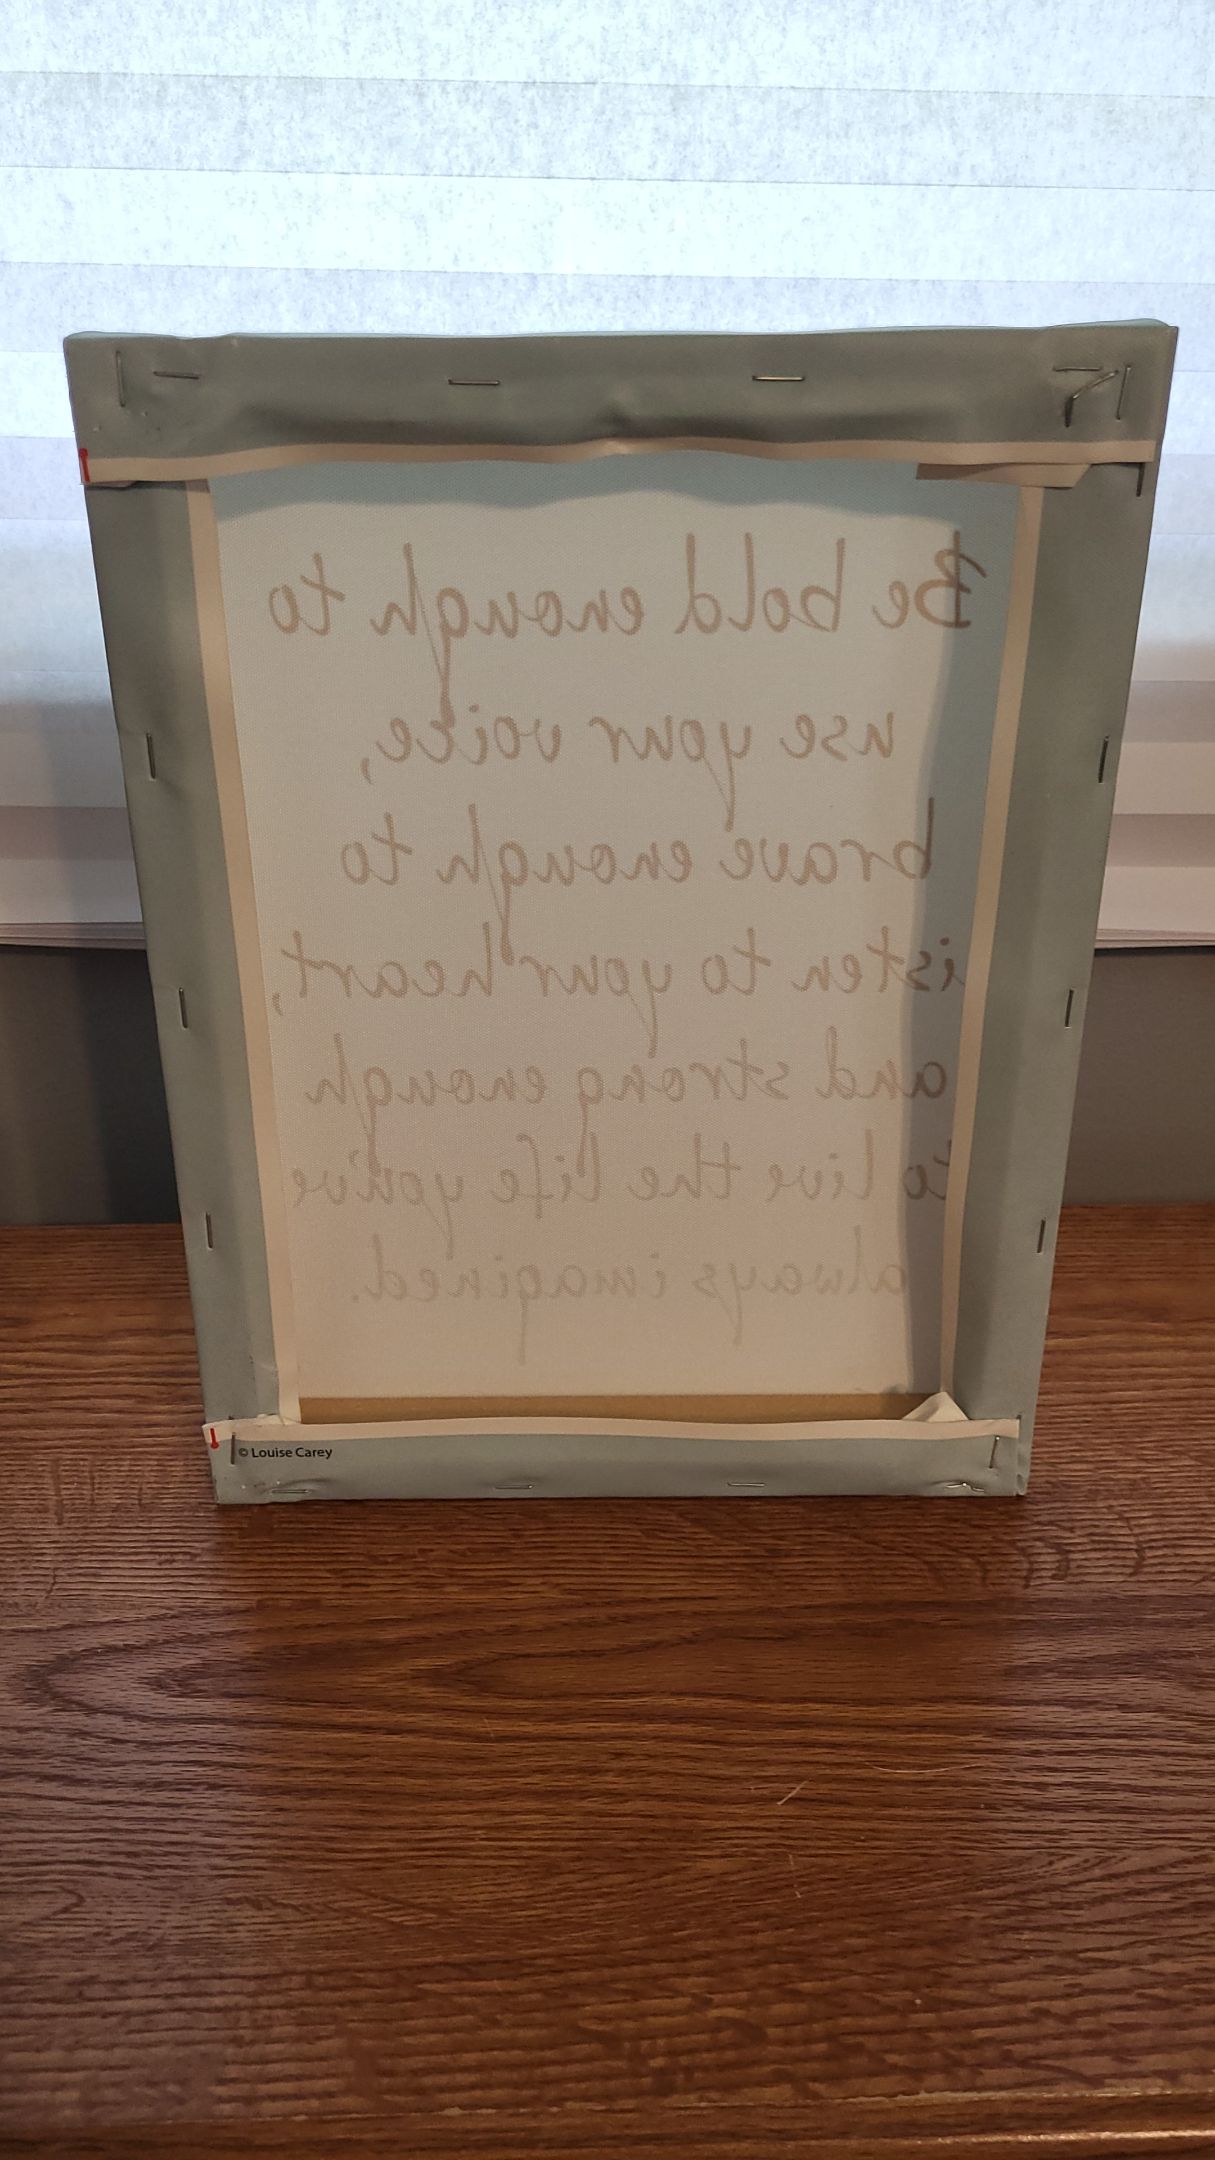 Be bold enough to
use your voice,
brave enough to
isten to your heart,
and strong enough
to live the life you've
always imagined.
© Louise Carey